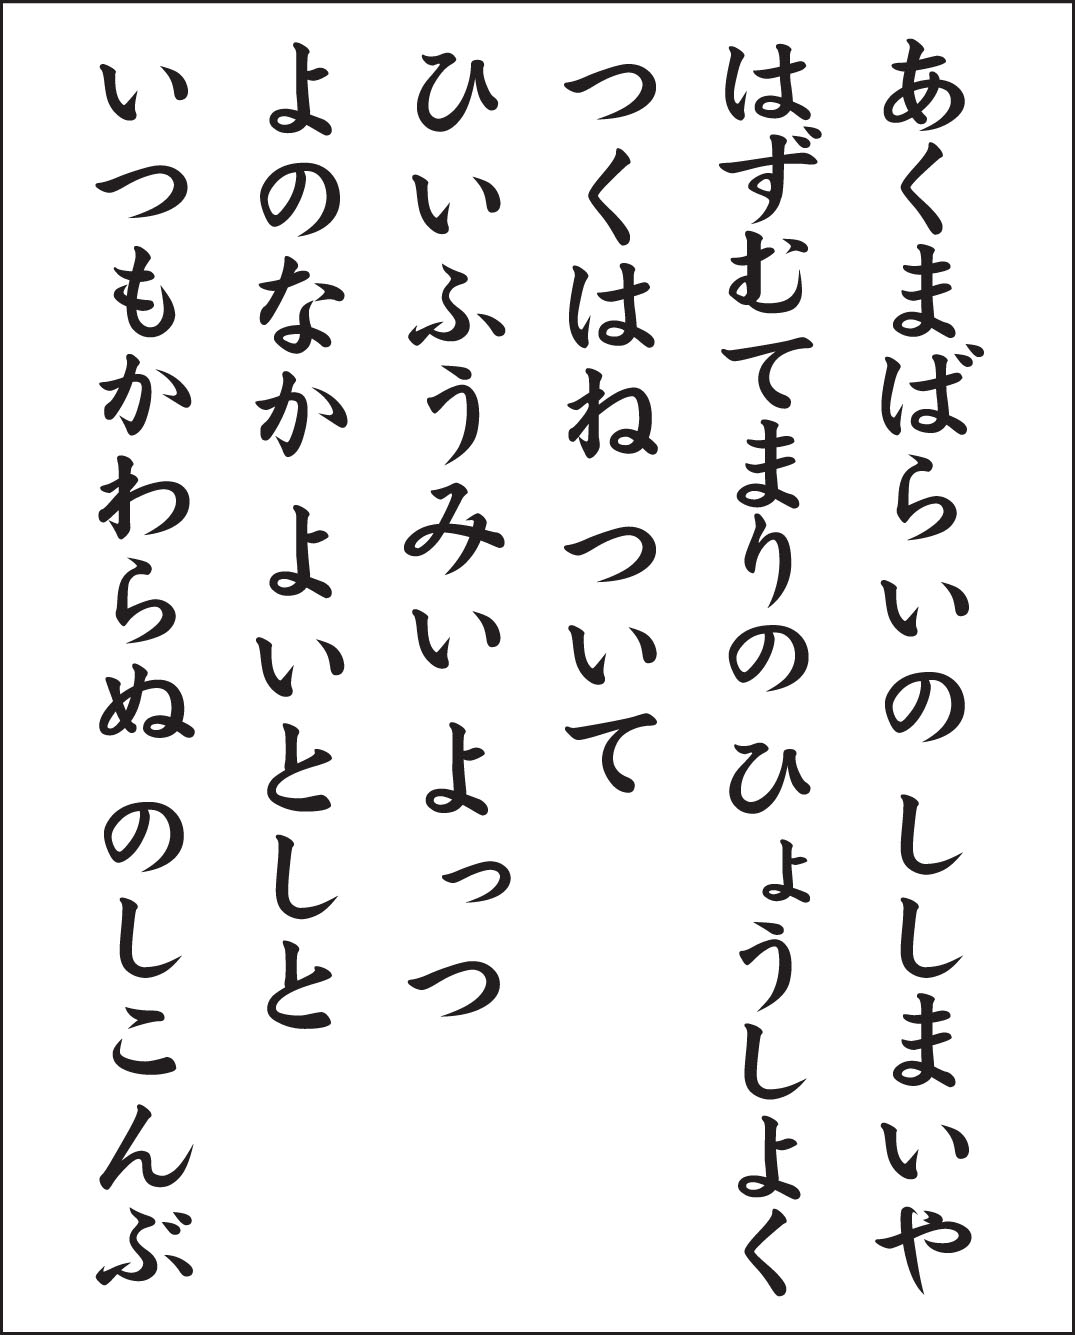 あくまばらいの ししまいや
はずむてまりの ひょうしよく
つくはね ついて
ひいふうみい よっつ
よのなか よいとしと
いつもかわらぬ のしこんぶ